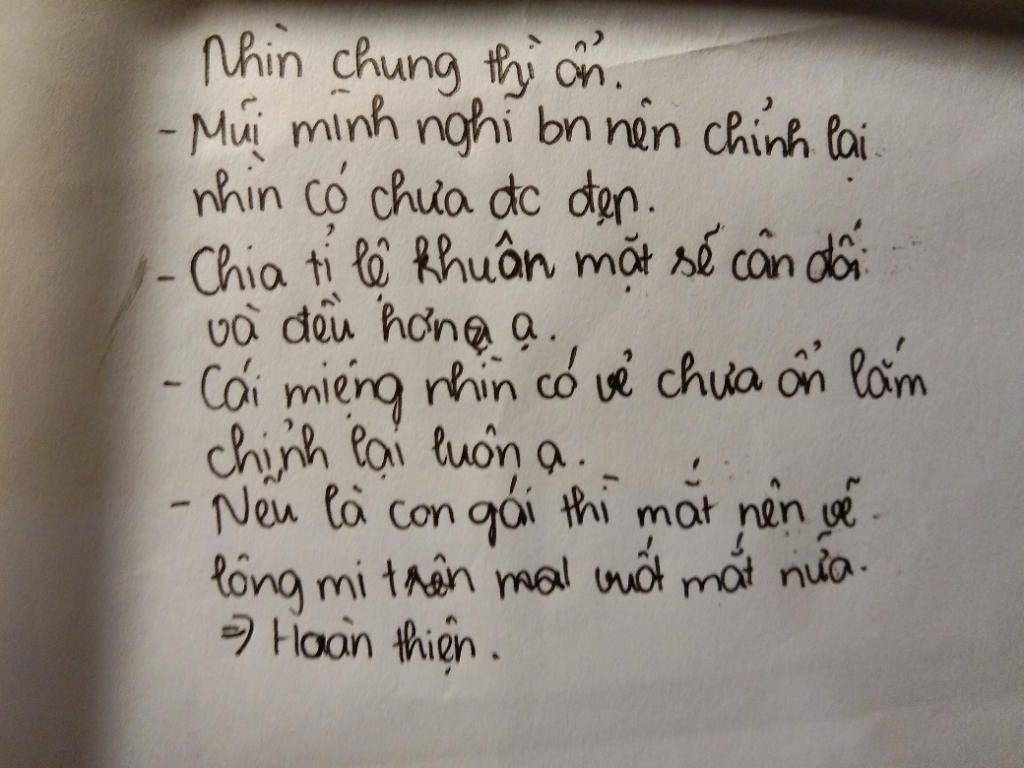 Nhìn chung thì ổn.
- Mũi mình nghĩ bn nên chỉnh lại
nhìn có chưa đc đẹp.
- Chia tỉ lệ khuân mặt sẽ cân đối
và đều hơn ạ.
- Cái miệng nhìn có vẻ chưa ổn lắm
chỉnh lại luôn ạ.
- Nếu là con gái thì mắt nên vẽ
lông mi trên vuốt mắt nữa.
=> Hoàn thiện.